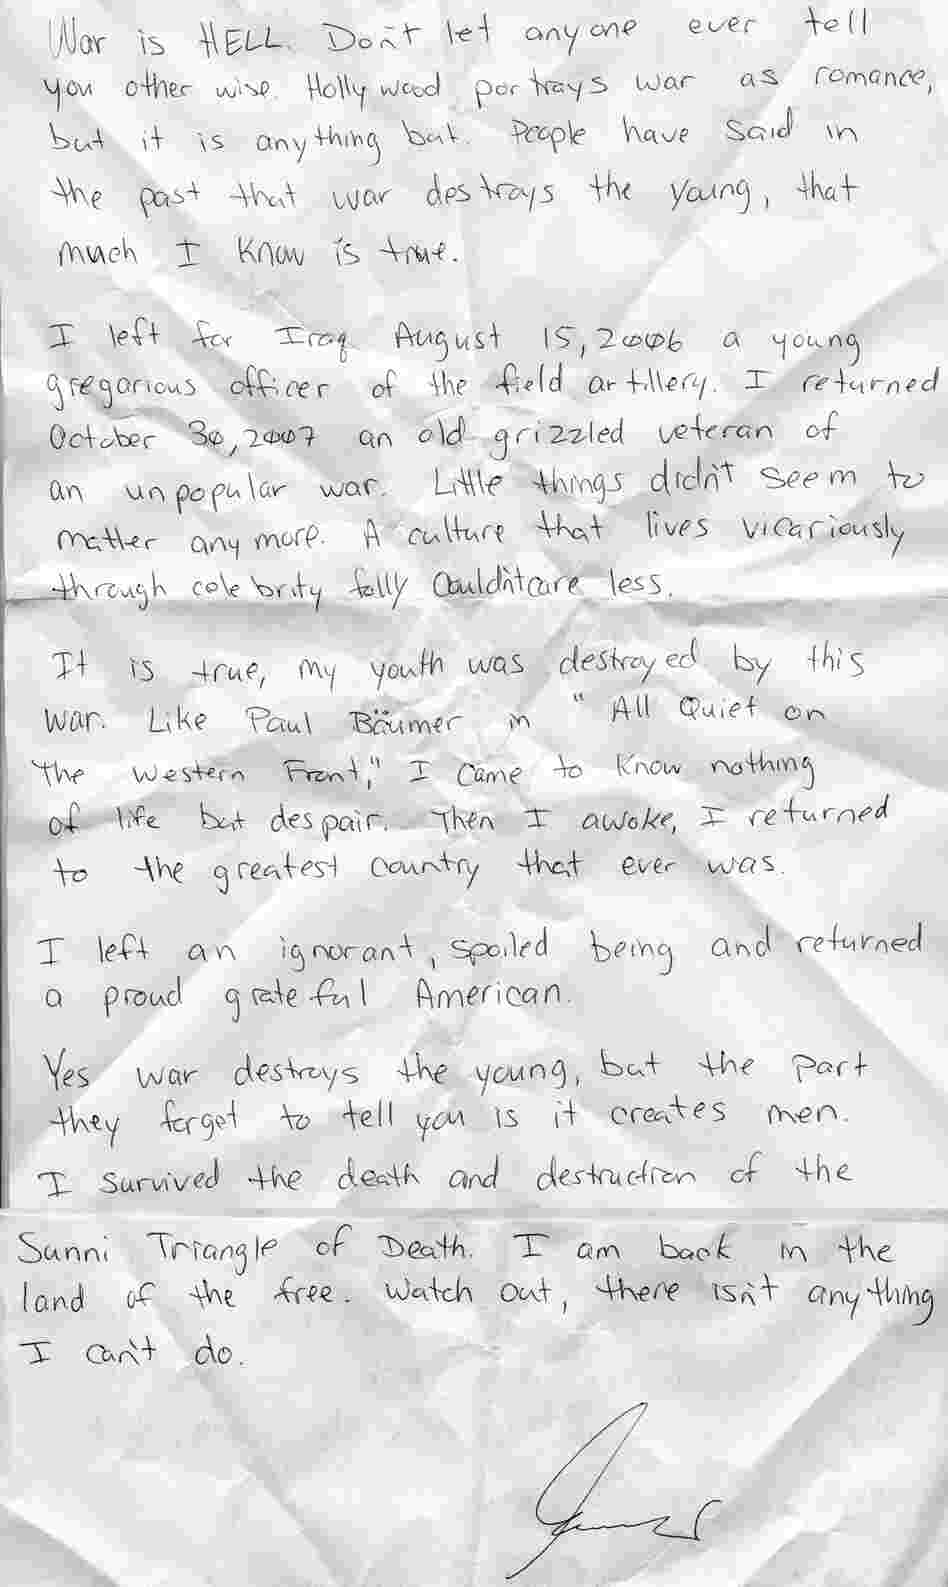 War is HELL. Don't let anyone ever tell
you other wise. Hollywood portrays war as romance,
but it is anything but. People have said in
the past that war destroys the young, that
much I know is true.
I left for Iraq August 15, 2006 a young
gregarious officer of the field artillery. I returned
October 30, 2007 an old grizzled veteran of
an unpopular war. Little things didn't seem to
matter anymore. A culture that lives vicariously
through celebrity folly Couldn't care less.
It is true, my youth was destroyed by this
war. Like Paul Bäumer in "All Quiet on
The Western Front," I came to know nothing
of life but despair. Then I awoke, I returned
to the greatest country that ever was.
I left an ignorant, spoiled being and returned
a proud grateful American.
Yes war destroys the young, but the part
they forget to tell you is it creates men.
I survived the death and destruction of the
Sunni Triangle of Death. I am back in the
land of the free. Watch out, there isn't anything
I can't do.